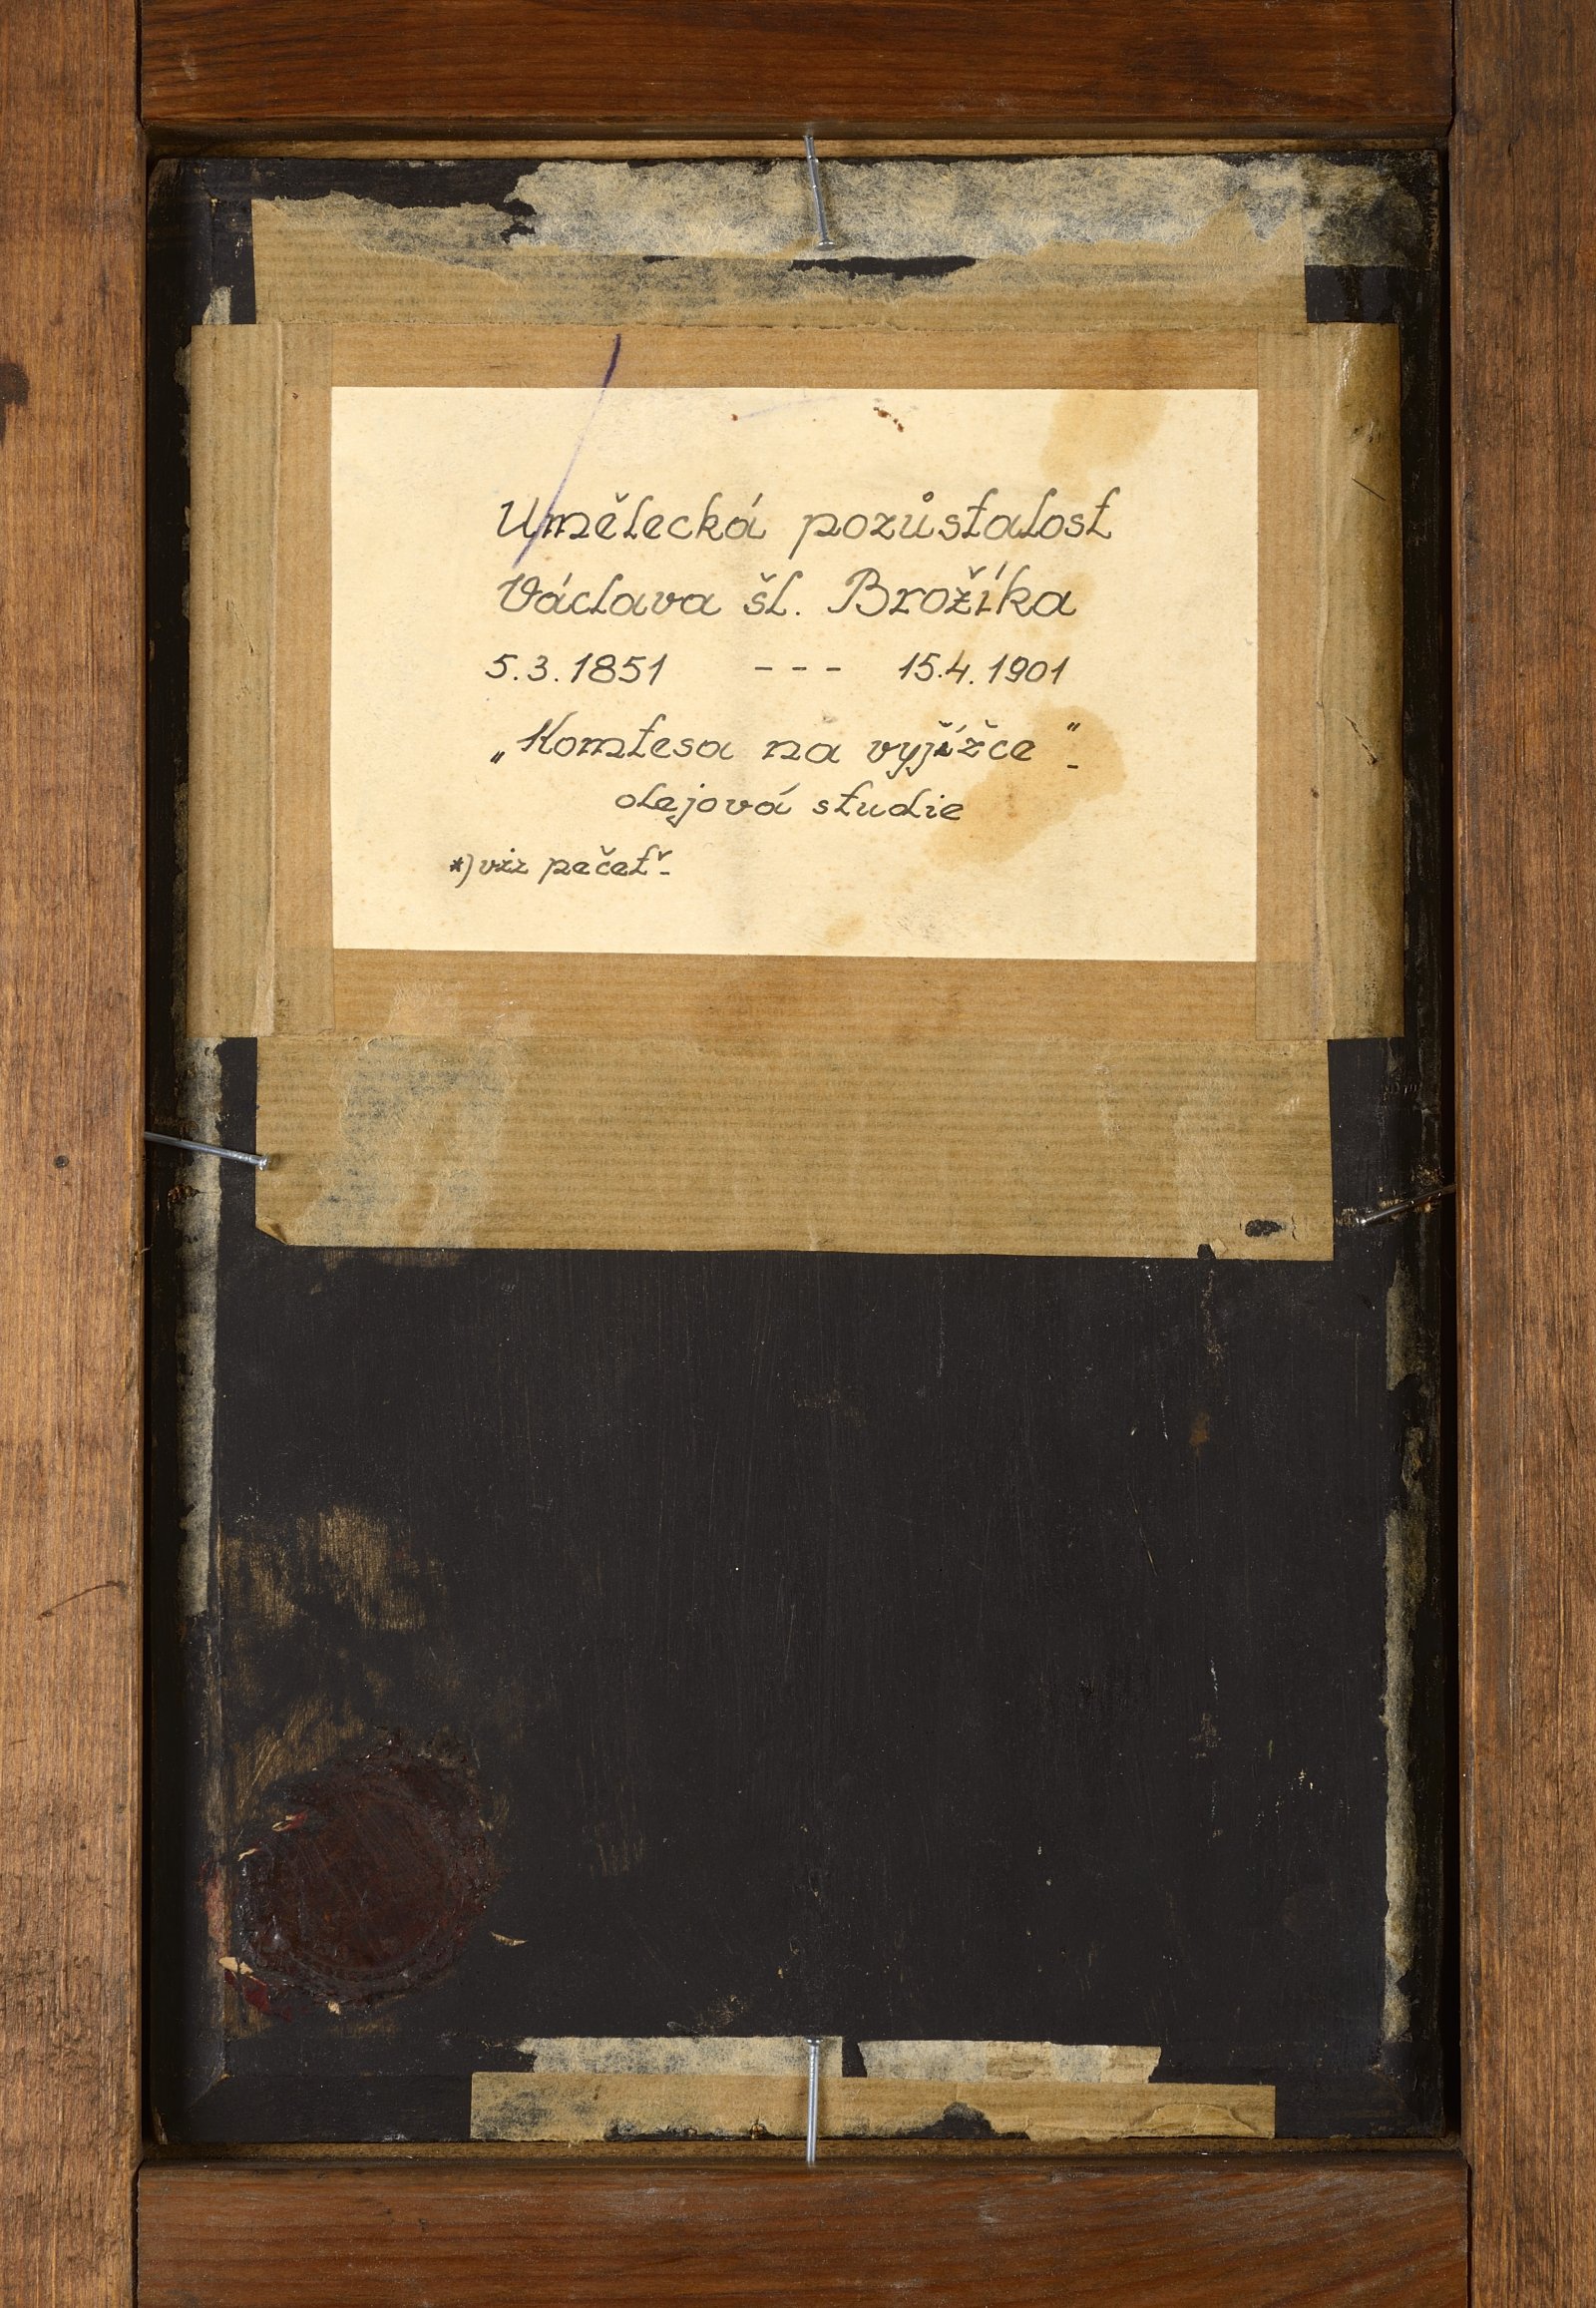 Umělecká pozůstalost
Václava šl. Brožíka
5.3.1851 - - - 15.4.1901
„Komtesa na vyjížďce“-
olejová studie
*) viz pečeť.-